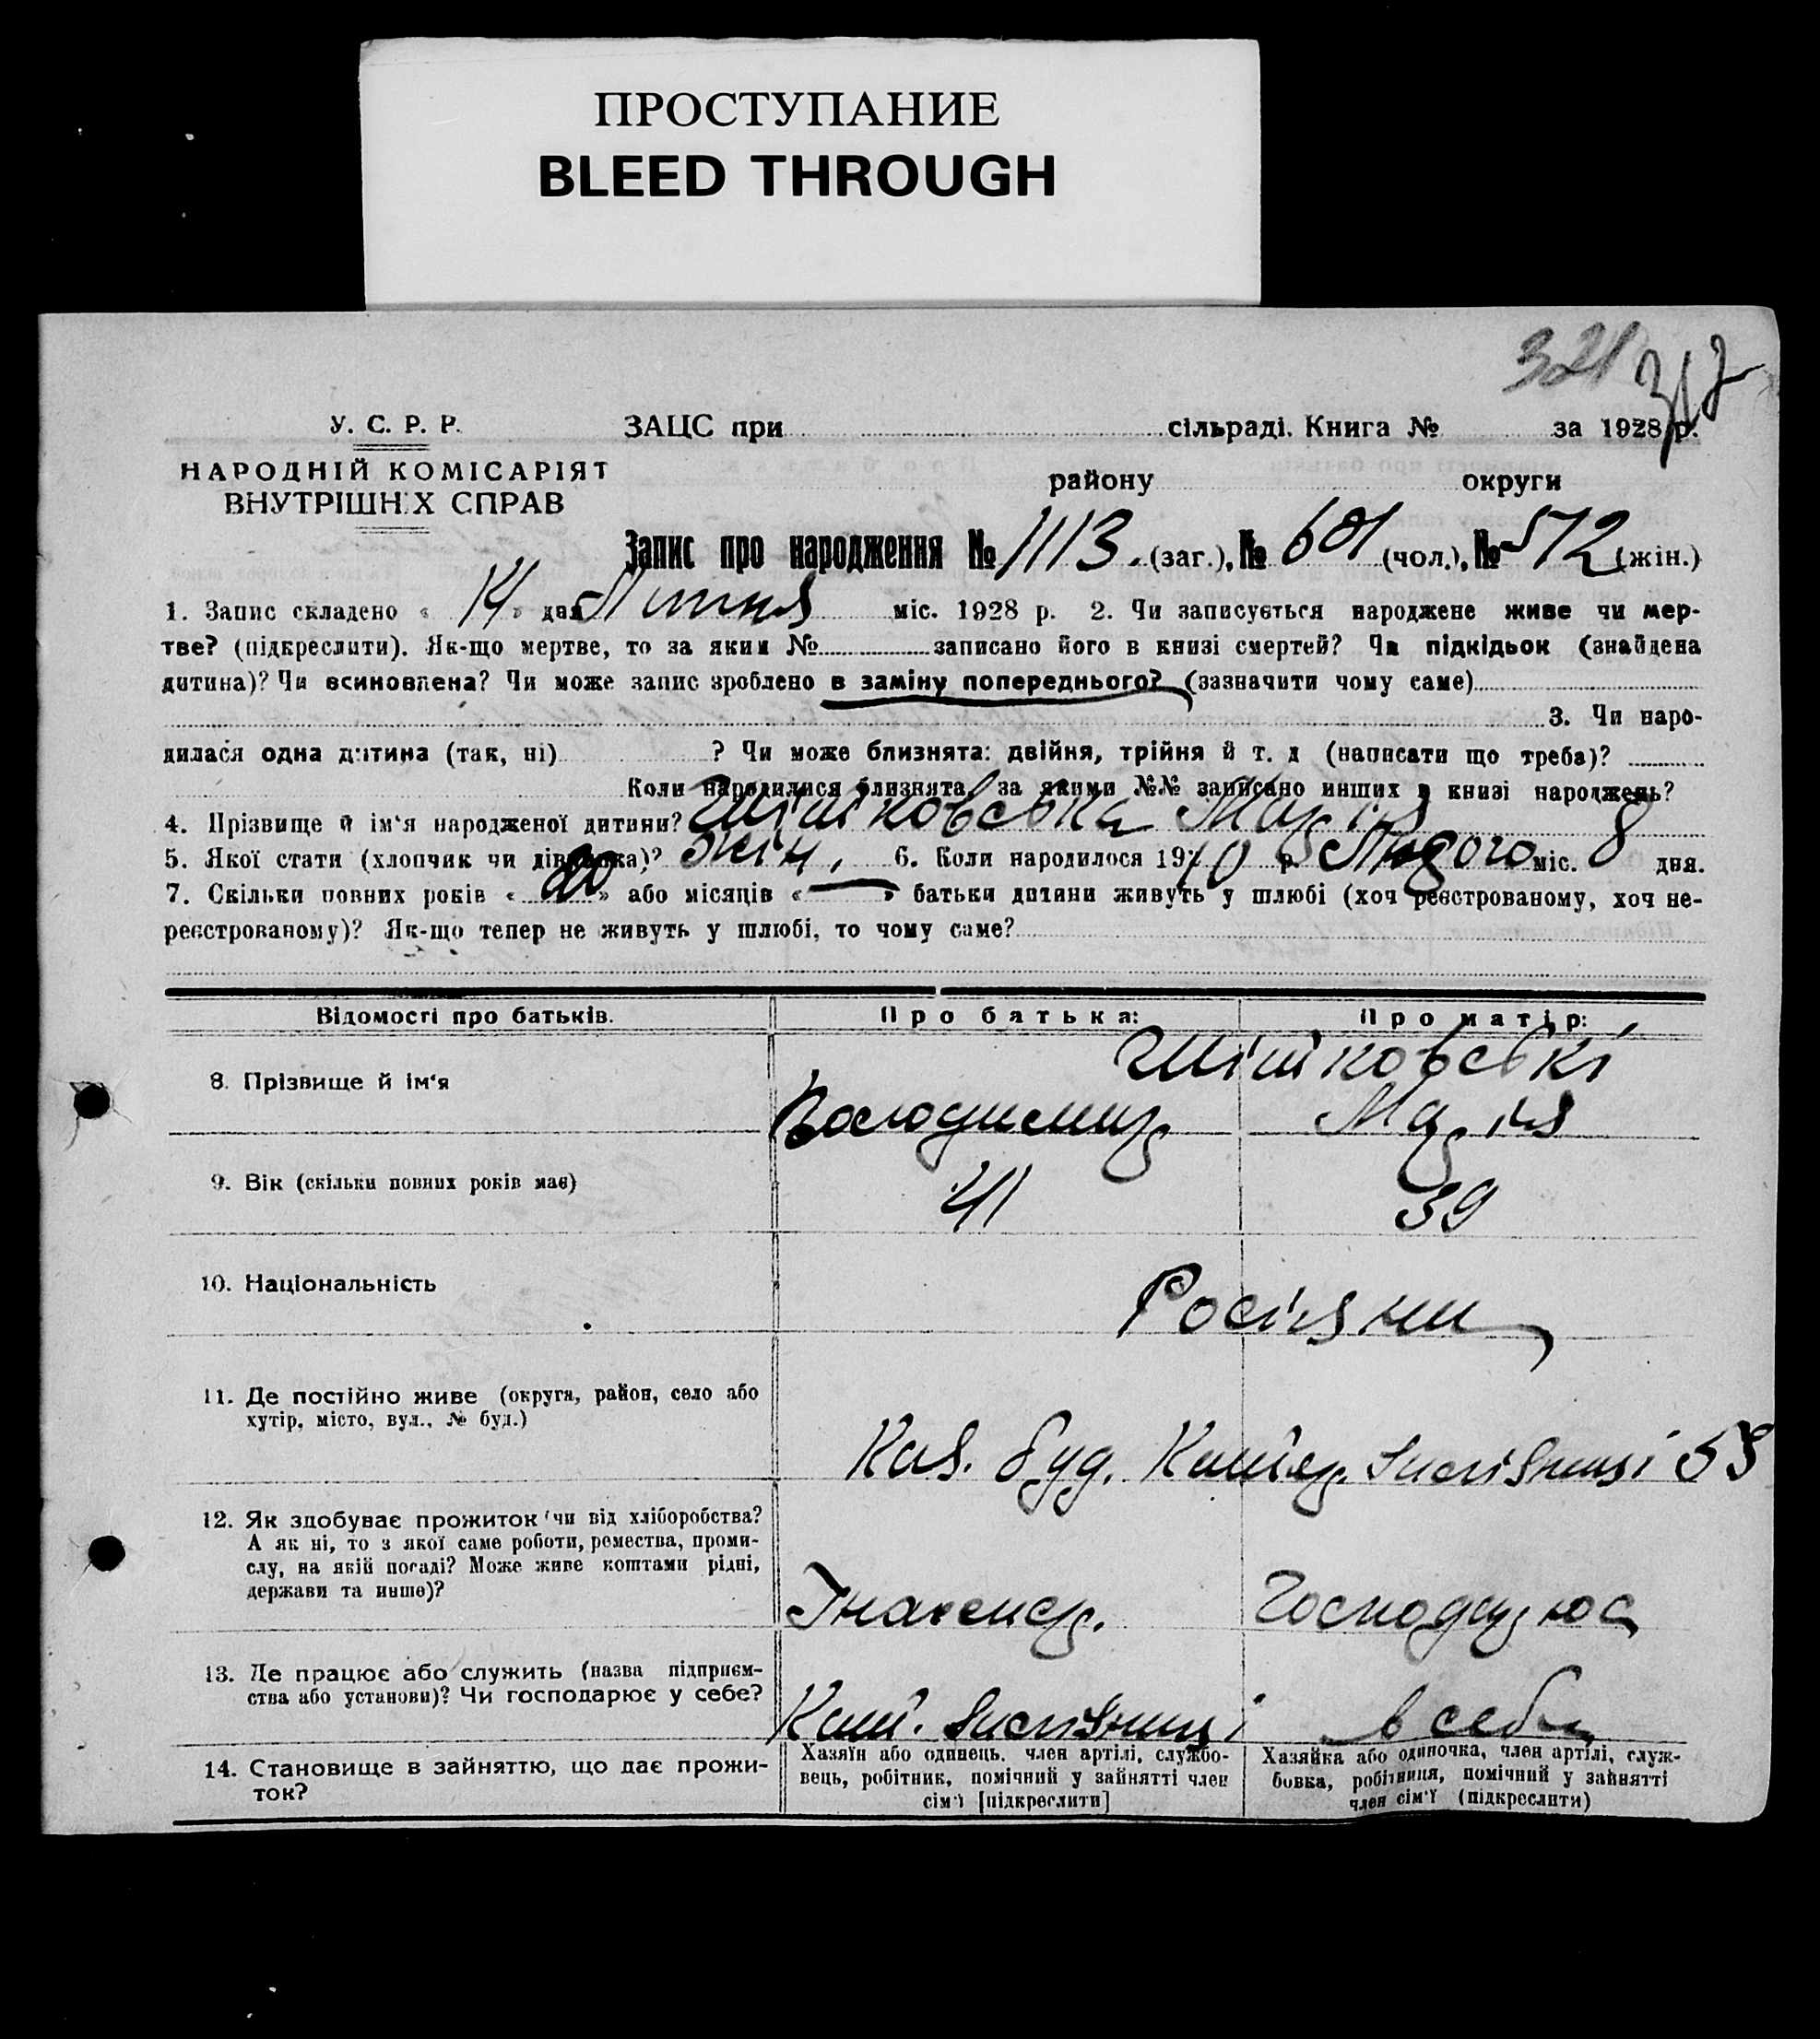 ПРОСТУПАНИЕ
BLEED THROUGH
321 317
У. С. Р. Р.
НАРОДНІЙ КОМІСАРІЯТ
ВНУТРІШНІХ СПРАВ
ЗАЦС при сільраді. Книга № за 1928 р.
району округи
Запис про народження № 1113 (заг.), № 601 (чол.), № 512 (жін.)
1. Запис складено « 14 » дня Липня міс. 1928 р. 2. Чи записується народжене живе чи мер-
тве? (підкреслити). Як-що мертве, то за яким № записано його в книзі смертей? Чи підкідьок (знайдена
дитина)? Чи всиновлена? Чи може запис зроблено в заміну попереднього? (зазначити чому саме)
3. Чи наро-
дилася одна дитина (так, ні) ? Чи може близнята: двійня, трійня й т. д (написати що треба)?
Коли народилися близнята, за якими №№ записано инших в книзі народжень?
4. Прізвище й ім'я народженої дитини? Шишковська Марія
5. Якої стати (хлопчик чи дівчинка)? жін. 6. Коли народилося 1910 р. Лютого міс. 8 дня.
7. Скільки повних років « 20 » або місяців « — » батьки дитини живуть у шлюбі (хоч реєстрованому, хоч не-
реєстрованому)? Як-що тепер не живуть у шлюбі, то чому саме?
Відомості про батьків. Про батька: Про матір:
Шишковські
8. Прізвище й ім'я Володимир Марія
9. Вік (скільки повних років має) 41 39
10. Національність Росіяни
11. Де постійно живе (округа, район, село або
хутір, місто, вул., № буд.)
Каз. буд. 53
12. Як здобуває прожиток (чи від хліборобства?
А як ні, то з якої саме роботи, ремества, проми-
слу, на якій посаді? Може живе коштами рідні,
держави та инше)?
Інженер. Господарює
13. Де працює або служить (назва підприєм-
ства або установи)? Чи господарює у себе?
в себе
14. Становище в зайняттю, що дає прожи-
ток?
Хазяїн або одинець, член артілі, службо-
вець, робітник, помічний у зайнятті член
сім'ї [підкреслити]
Хазяйка або одиночка, член артілі, служ-
бовка, робітниця, помічний у зайнятті
член сім'ї (підкреслити)